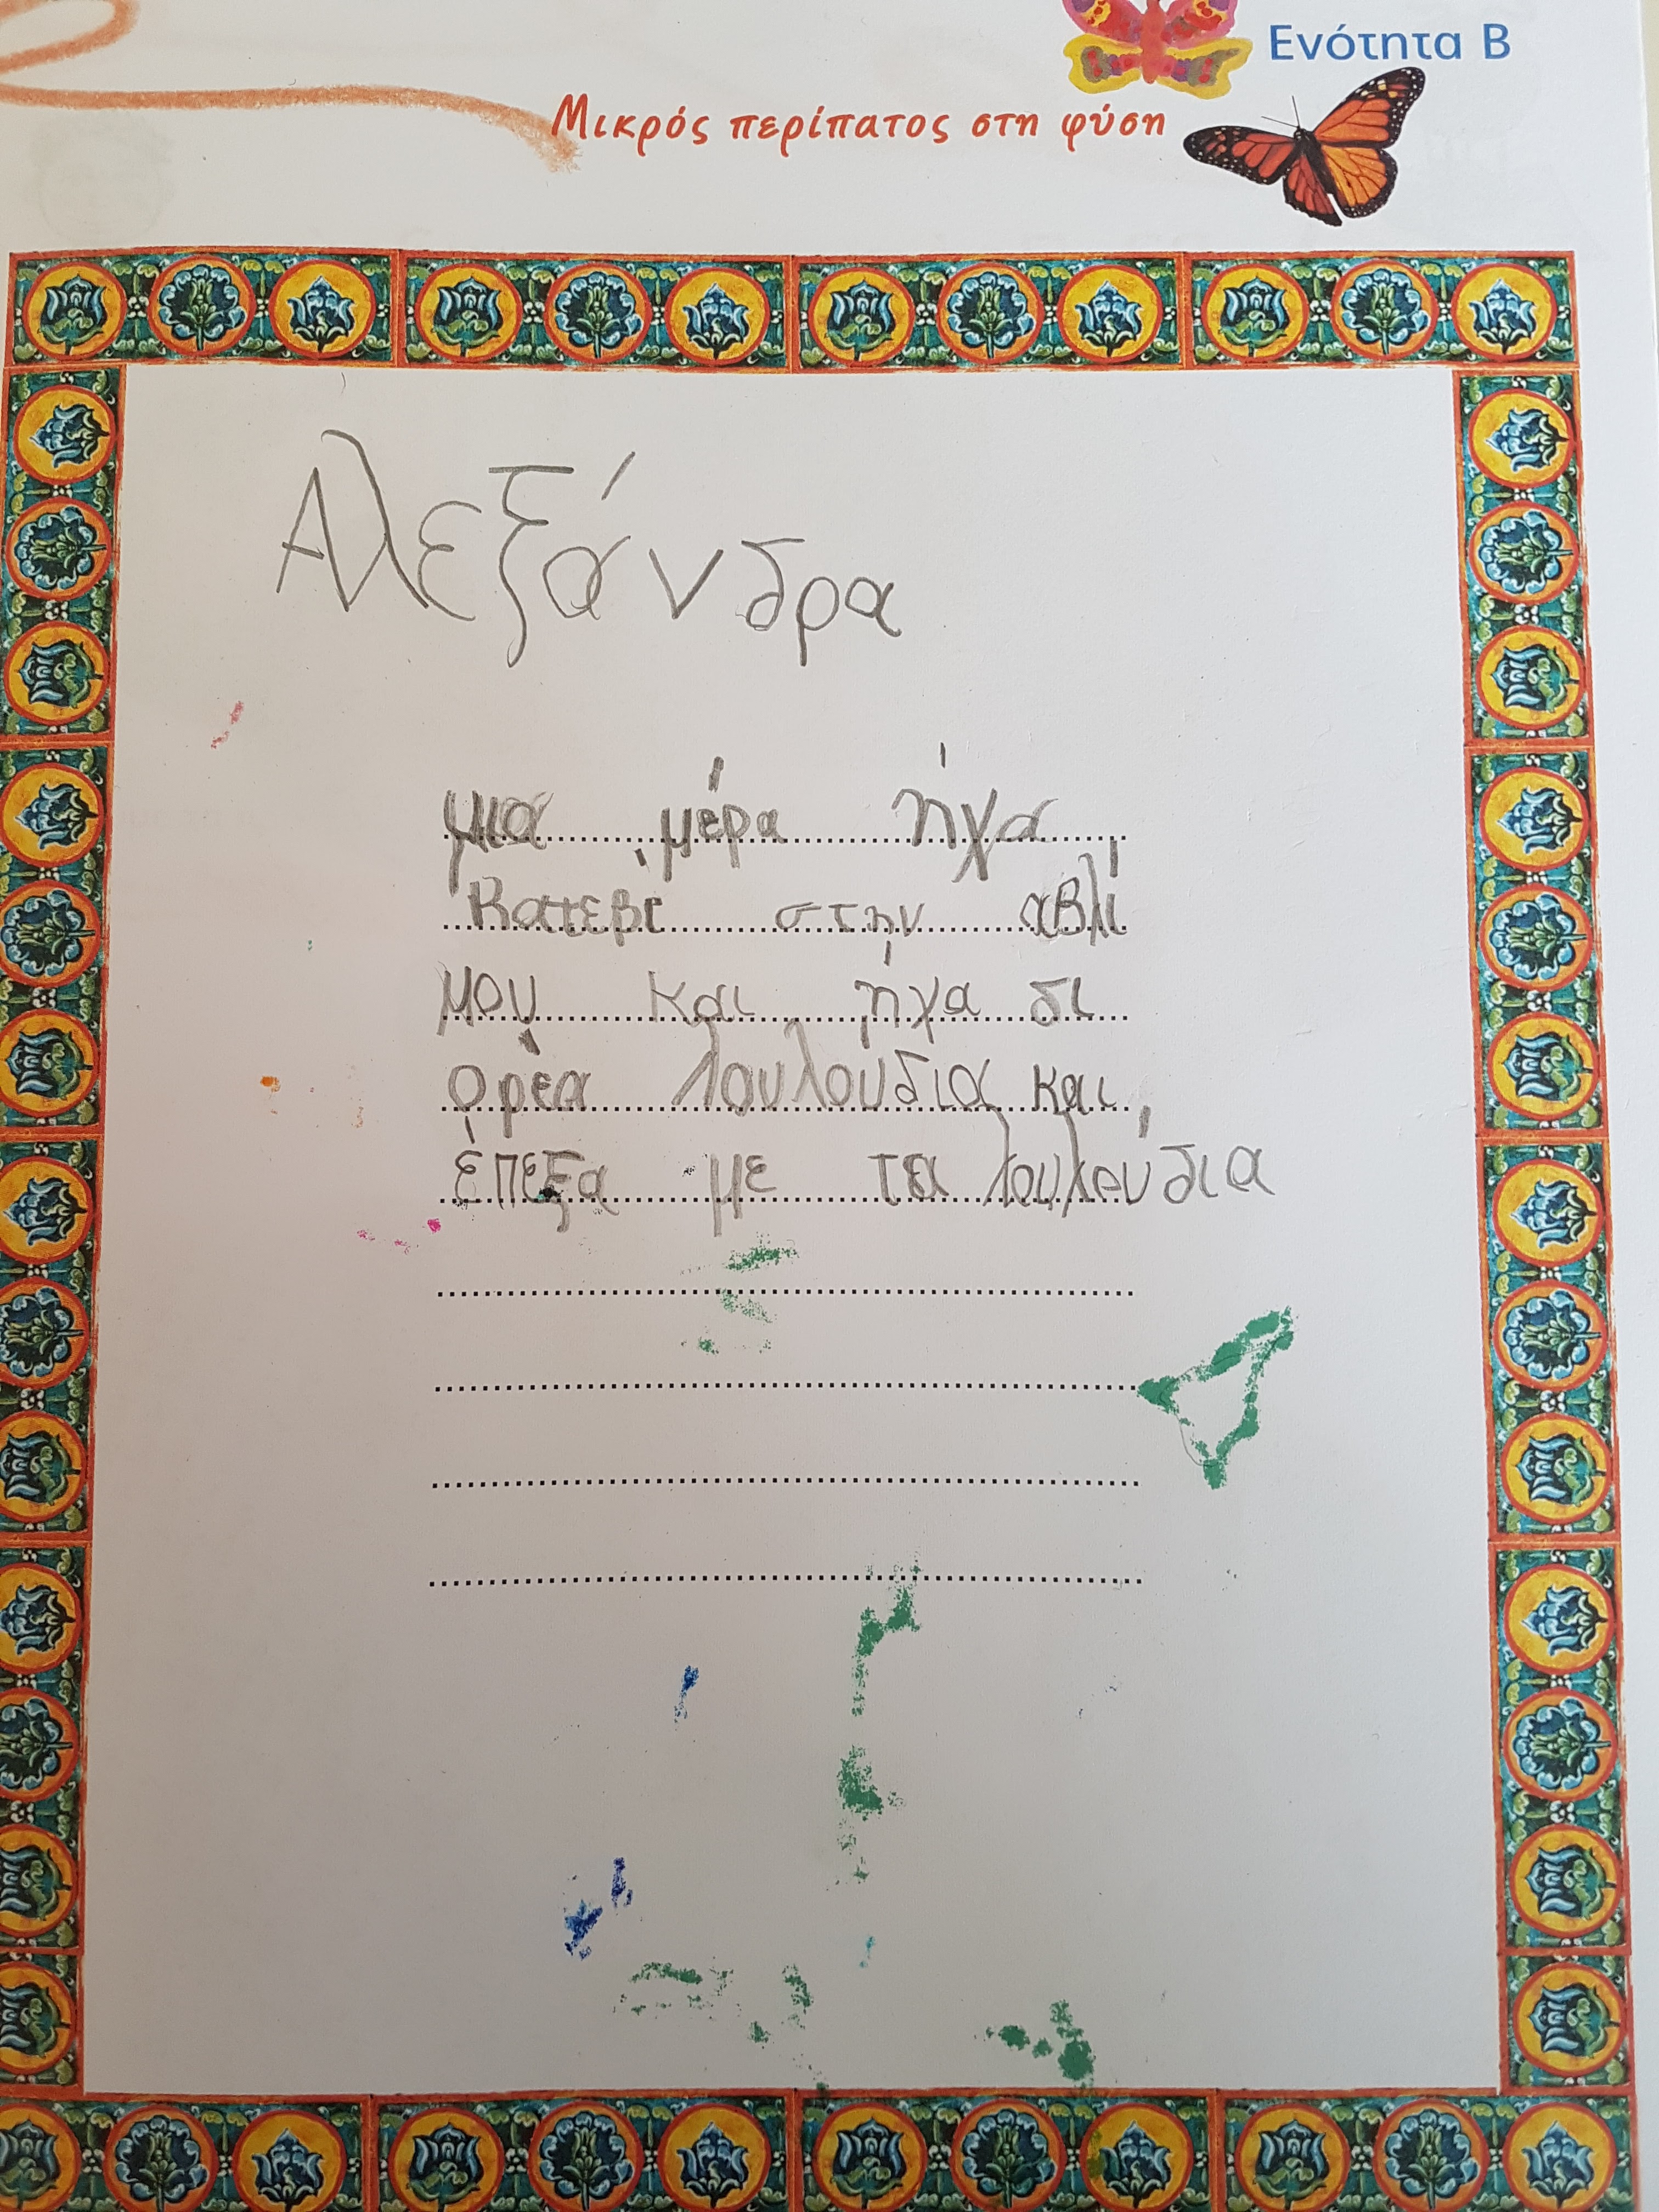 Ενότητα Β
Μικρός περίπατος στη φύση
Αλεξάνδρα
μια μέρα ήχα
κατεβί στην αβλί
μου και ήχα δι
ορέα λουλούδια και
έπεξα με τα λουλούδια